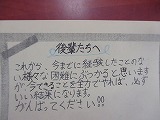 後輩たちへ
これから、今までに経験したことのな
い様々な困難にぶつかると思います
が、今できることを全力でやれば、必ず
いい結果になります。
がんばってください!!